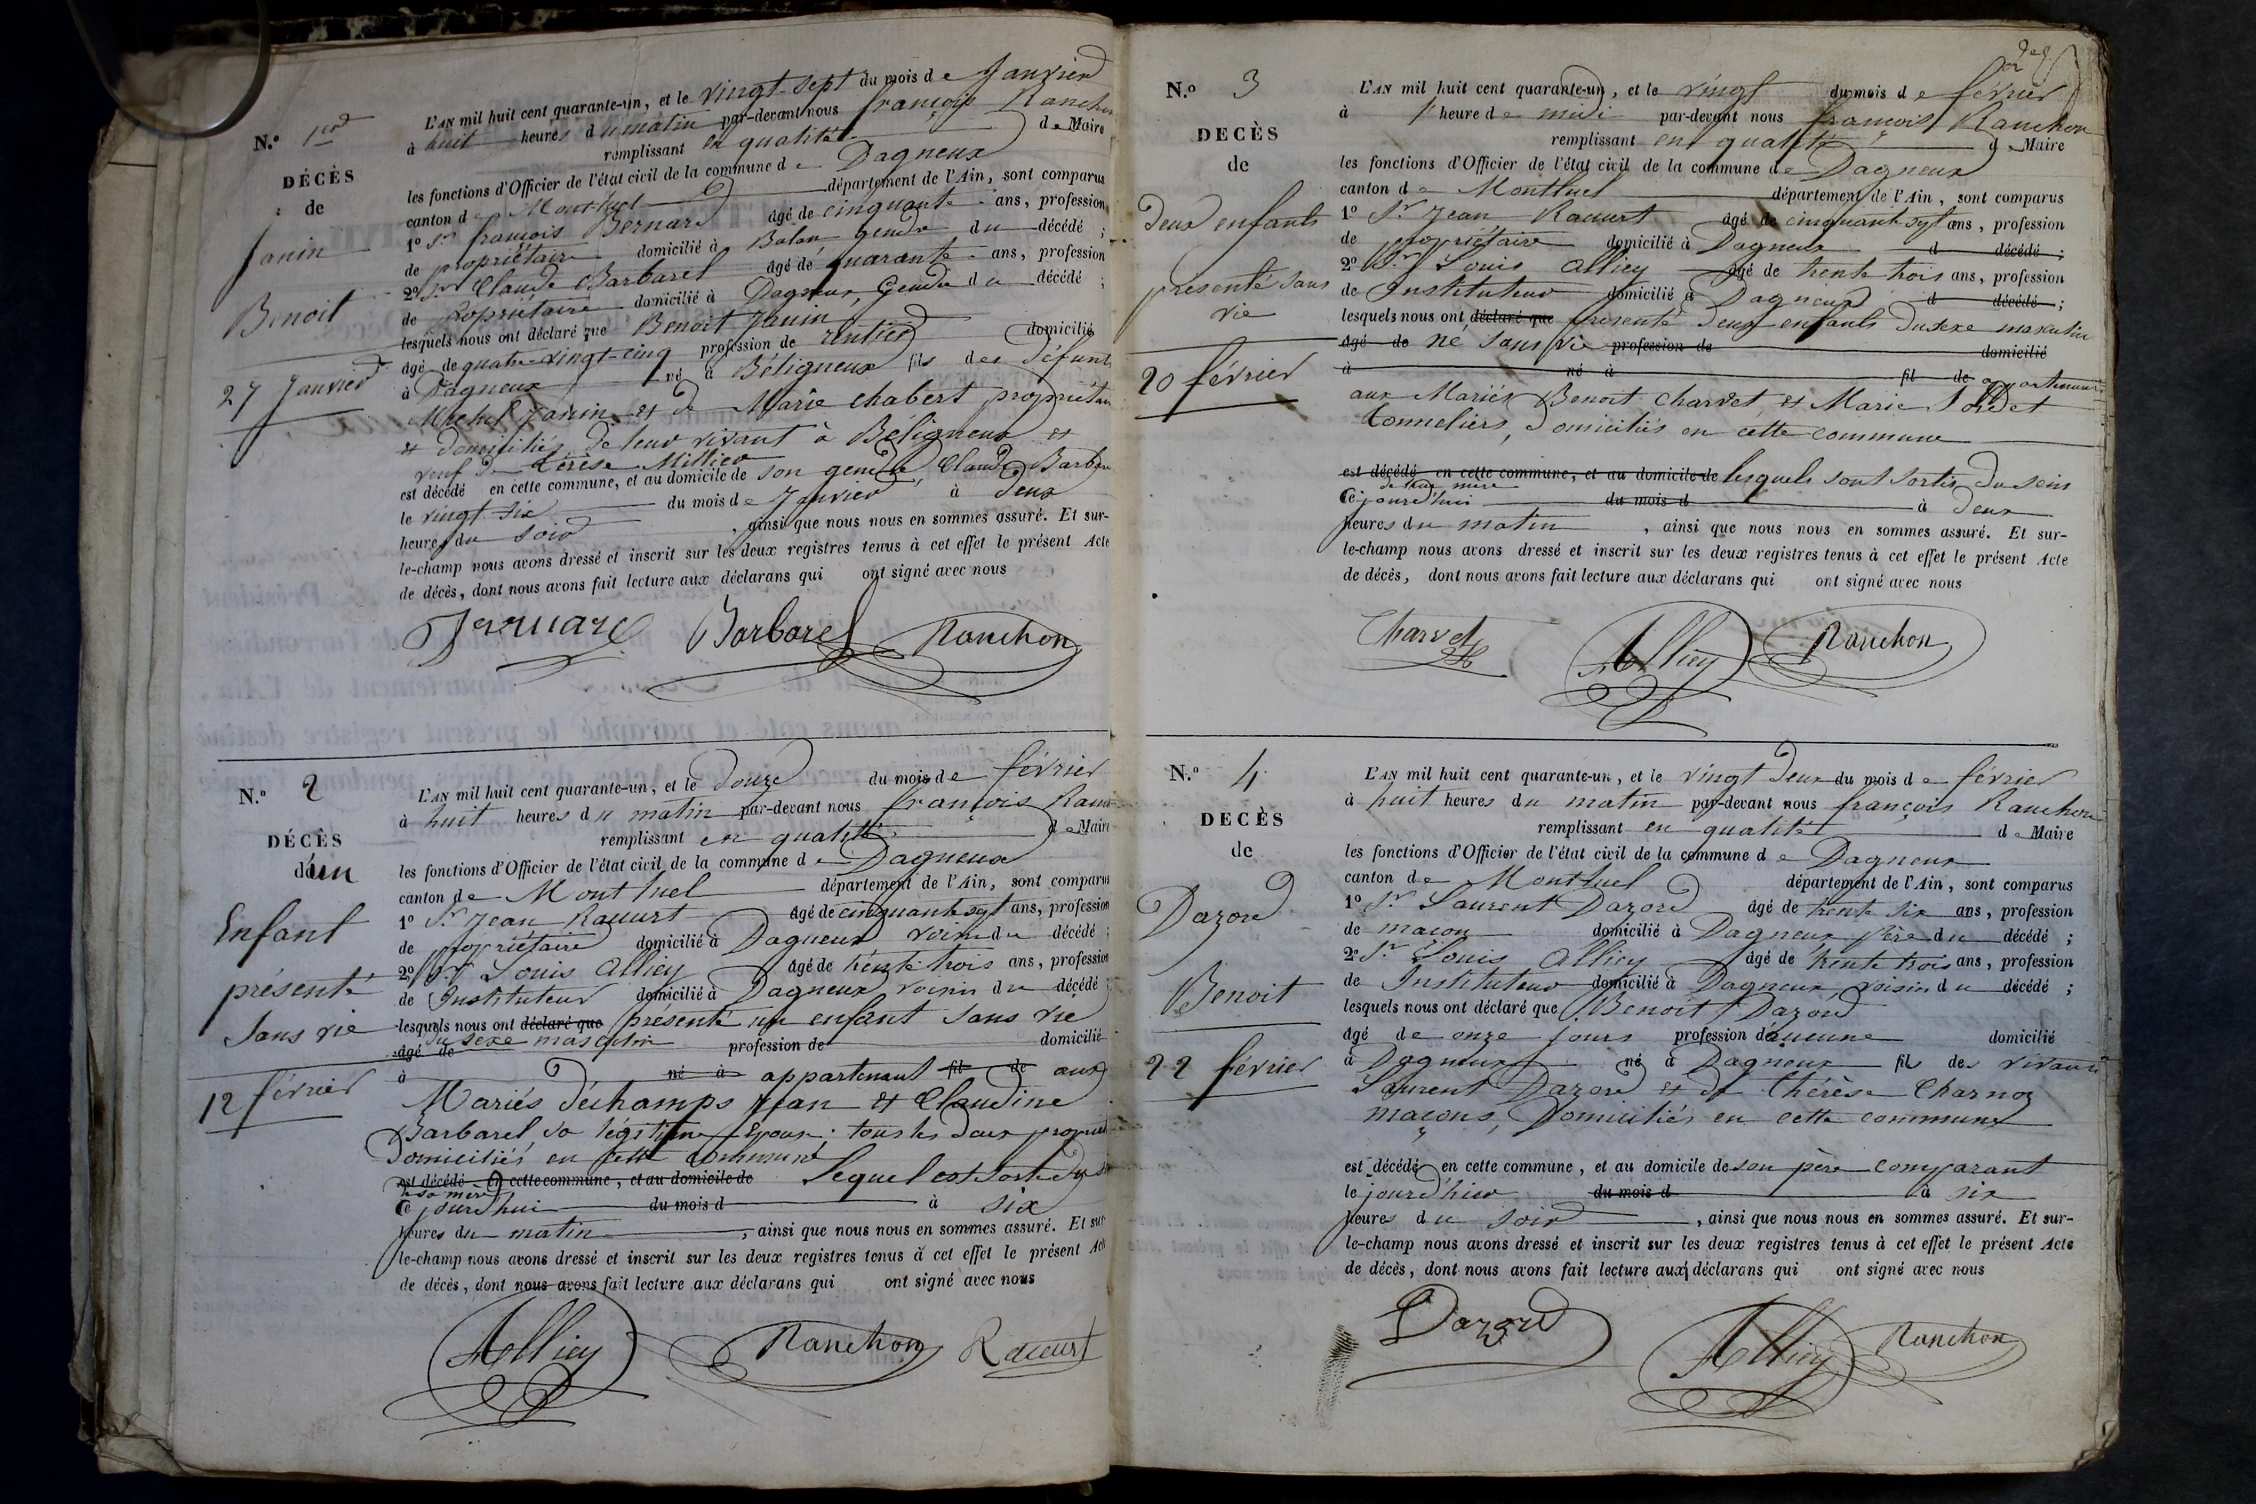 N.º 1er
DÉCÈS
de
Janin
Benoit
27 Janvier
L'AN mil huit cent quarante-un, et le vingt-sept du mois de Janvier
à huit heures du matin par-devant nous françois Ranchon
remplissant en qualité de Maire
les fonctions d'Officier de l'état civil de la commune de Dagneux
canton de Montluel département de l'Ain, sont comparus
1º Sr françois Bernard âgé de cinquante ans, profession
de propriétaire domicilié à Balan gendre du décédé ;
2º Sr Claude Barbarel âgé de quarante ans, profession
de Propriétaire domicilié à Dagneux, Gendre du décédé ;
lesquels nous ont déclaré que Benoit Janin
âgé de quatre-vingt-cinq profession de rentier domicilié
à Dagneux né à Béligneux fils des défunts
Michel Janin et de Marie Chabert propriétaires
et domiciliés de leur vivant à Béligneux et
veuf de Térèse Millier
est décédé en cette commune, et au domicile de son gendre, Claude Barbarel
le vingt six du mois de Janvier à deux
heures du soir, ainsi que nous nous en sommes assuré. Et sur-
le-champ nous avons dressé et inscrit sur les deux registres tenus à cet effet le présent Acte
de décès, dont nous avons fait lecture aux déclarans qui ont signé avec nous
Barbarel Ranchon
N.º 2
DÉCÈS
d'un
Enfant
présenté
sans vie
12 février
L'AN mil huit cent quarante-un, et le douze du mois de février
à huit heures du matin par-devant nous françois Ranchon
remplissant en qualité de Maire
les fonctions d'Officier de l'état civil de la commune de Dagneux
canton de Montluel département de l'Ain, sont comparus
1º Sr Jean Racurt âgé de cinquante sept ans, profession
de propriétaire domicilié à Dagneux voisin du décédé ;
2º Sr Louis Alliey âgé de trente trois ans, profession
de Instituteur domicilié à Dagneux voisin du décédé ;
lesquels nous ont déclaré que présenté un enfant sans vie
du sexe masculin
âgé de profession de domicilié
à né à appartenant fil de aux
Mariés Déchamps Jean et Claudine
Barbarel, sa légitime Epouse ; tous les deux propriét
domiciliés en cette commune
est décédé en cette commune, et au domicile de lequel est sorti du sein
de sa mère
Ce jourd'hui du mois d à six
heures du matin, ainsi que nous nous en sommes assuré. Et sur
le-champ nous avons dressé et inscrit sur les deux registres tenus à cet effet le présent Acte
de décès, dont nous avons fait lecture aux déclarans qui ont signé avec nous
Alliey Ranchon Racurt
N.º 3
DECÈS
de
Deux enfants
présenté sans
vie
20 février
L'AN mil huit cent quarante-un, et le vingt du mois de février
à 1 heure de midi par-devant nous françois Ranchon
remplissant en qualité de Maire
les fonctions d'Officier de l'état civil de la commune de Dagneux
canton de Montluel département de l'Ain, sont comparus
1º Sr Jean Racurt âgé de cinquante sept ans, profession
de propriétaire domicilié à Dagneux d décédé ;
2º Sr Louis Alliey âgé de trente trois ans, profession
de Instituteur domicilié à Dagneux d décédé ;
lesquels nous ont déclaré que présenté deux enfants du sexe masculin
âgé de né sans vie profession de domicilié
à né à fil de appartenant
aux Mariés Benoit Charvet et Marie
Tonneliers, domiciliés en cette commune
est décédé en cette commune, et au domicile de lesquels sont sortis du sein
de leur mère
Ce jourd'hui du mois d à deux
heures du matin, ainsi que nous nous en sommes assuré. Et sur-
le-champ nous avons dressé et inscrit sur les deux registres tenus à cet effet le présent Acte
de décès, dont nous avons fait lecture aux déclarans qui ont signé avec nous
Charvet Alliey Ranchon
N.º 4
DECÈS
de
Dazord
Benoit
22 février
L'AN mil huit cent quarante-un, et le vingt deux du mois de février
à huit heures du matin par-devant nous françois Ranchon
remplissant en qualité de Maire
les fonctions d'Officier de l'état civil de la commune de Dagneux
canton de Montluel département de l'Ain, sont comparus
1º Sr Laurent Dazord âgé de trente six ans, profession
de maçon domicilié à Dagneux père du décédé ;
2º Sr Louis Alliey âgé de trente trois ans, profession
de Instituteur domicilié à Dagneux, voisin du décédé ;
lesquels nous ont déclaré que Benoit Dazord
âgé de onze jours profession d'aucune domicilié
à Dagneux né à Dagneux fils des vivants
Laurent Dazord et de Thérèse Charnoz
maçons, Domiciliés en cette commune
est décédé en cette commune, et au domicile de son père comparant
le jourd'hier du mois d à six
heures du soir, ainsi que nous nous en sommes assuré. Et sur-
le-champ nous avons dressé et inscrit sur les deux registres tenus à cet effet le présent Acte
de décès, dont nous avons fait lecture aux déclarans qui ont signé avec nous
Dazord Alliey Ranchon